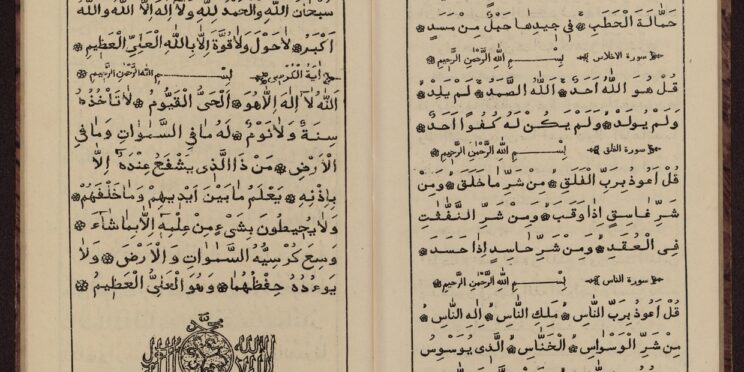 حَمَّالَةَ الْحَطَبِ ۞ فِي جِيدِهَا حَبْلٌ مِنْ مَسَدٍ
سورة الاخلاص بِسْمِ اللهِ الرَّحْمٰنِ الرَّحِيمِ
قُلْ هُوَ اللّٰهُ اَحَدٌ ۞ اَللّٰهُ الصَّمَدُ ۞ لَمْ يَلِدْ ۞
وَلَمْ يُولَدْ ۞ وَلَمْ يَكُنْ لَهُ كُفُوًا اَحَدٌ ۞
سورة الفلق بِسْمِ اللهِ الرَّحْمٰنِ الرَّحِيمِ
قُلْ اَعُوذُ بِرَبِّ الْفَلَقِ ۞ مِنْ شَرِّ مَا خَلَقَ ۞ وَمِنْ
شَرِّ غَاسِقٍ اِذَا وَقَبَ ۞ وَمِنْ شَرِّ النَّفَّاثَاتِ
فِى الْعُقَدِ ۞ وَمِنْ شَرِّ حَاسِدٍ اِذَا حَسَدَ ۞
سورة الناس بِسْمِ اللهِ الرَّحْمٰنِ الرَّحِيمِ
قُلْ اَعُوذُ بِرَبِّ النَّاسِ ۞ مَلِكِ النَّاسِ ۞ اِلٰهِ النَّاسِ ۞
مِنْ شَرِّ الْوَسْوَاسِ ۞ الْخَنَّاسِ ۞ اَلَّذِى يُوَسْوِسُ
سُبْحَانَ اللّٰهِ وَالْحَمْدُ لِلّٰهِ وَلَا اِلٰهَ اِلَّا اللّٰهُ وَاللّٰهُ
اَكْبَرُ ۞ لَا حَوْلَ وَلَا قُوَّةَ اِلَّا بِاللّٰهِ الْعَلِىِّ الْعَظِيمِ
اٰيَةُ الْكُرْسِى بِسْمِ اللهِ الرَّحْمٰنِ الرَّحِيمِ
اَللّٰهُ لَا اِلٰهَ اِلَّا هُوَ ۞ اَلْحَىُّ الْقَيُّومُ ۞ لَا تَاْخُذُهُ
سِنَةٌ وَلَا نَوْمٌ ۞ لَهُ مَا فِى السَّمٰوَاتِ وَمَا فِى
الْاَرْضِ ۞ مَنْ ذَا الَّذِى يَشْفَعُ عِنْدَهُ اِلَّا
بِاِذْنِهِ ۞ يَعْلَمُ مَا بَيْنَ اَيْدِيهِمْ وَمَا خَلْفَهُمْ ۞
وَلَا يُحِيطُونَ بِشَىْءٍ مِنْ عِلْمِهِ اِلَّا بِمَا شَاءَ ۞
وَسِعَ كُرْسِيُّهُ السَّمٰوَاتِ وَالْاَرْضَ ۞ وَلَا
يَؤُدُهُ حِفْظُهُمَا ۞ وَهُوَ الْعَلِىُّ الْعَظِيمُ ۞